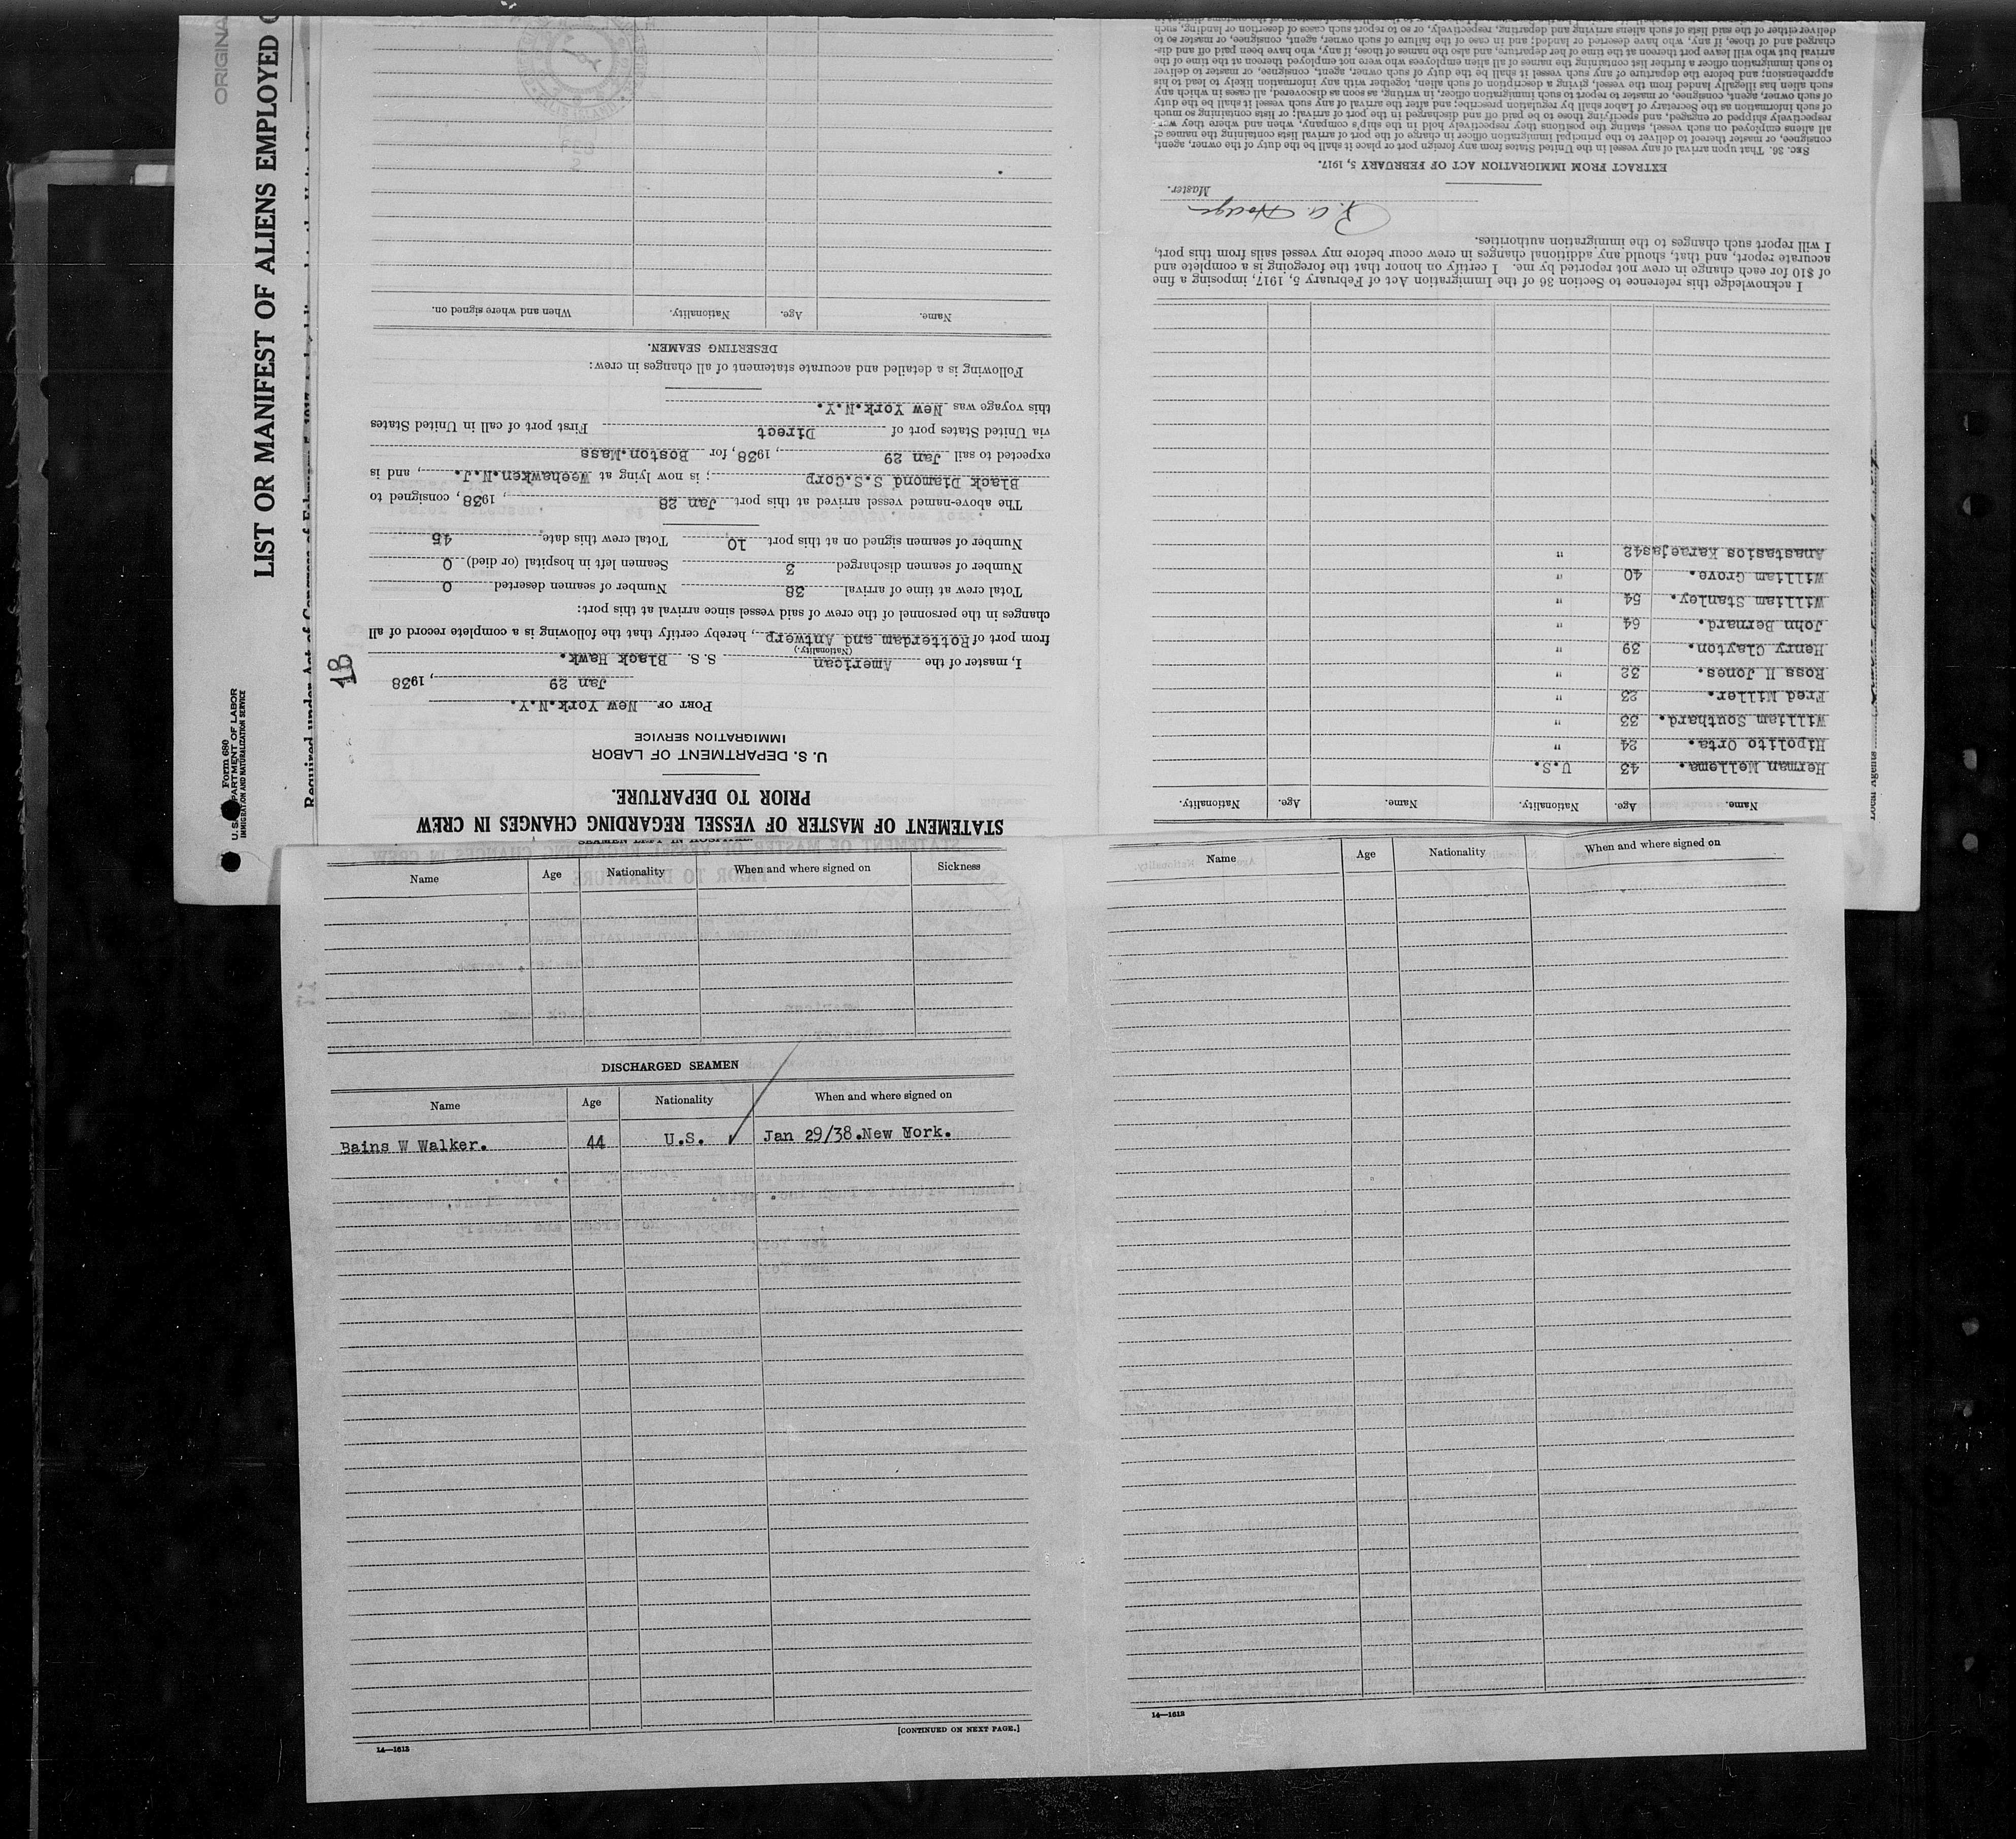 ORIGINA
LIST OR MANIFEST OF ALIENS EMPLOYED
Form 680
U. S. DEPARTMENT OF LABOR
IMMIGRATION AND NATURALIZATION SERVICE
Required under Act of Congress of
18
STATEMENT OF MASTER OF VESSEL REGARDING CHANGES IN CREW
PRIOR TO DEPARTURE.
U. S. DEPARTMENT OF LABOR
IMMIGRATION SERVICE
PORT OF New York.N.Y.
Jan 29, 1938
I, master of the American S. S. Black Hawk.
(Nationality.)
from port of Rotterdam and Antwerp, hereby certify that the following is a complete record of all
changes in the personnel of the crew of said vessel since arrival at this port:
Total crew at time of arrival 38 Number of seamen deserted 0
Number of seamen discharged 3 Seamen left in hospital (or died) 0
Number of seamen signed on at this port 10 Total crew this date 45
The above-named vessel arrived at this port Jan 28, 1938, consigned to
Black Diamond S.S.Corp; is now lying at Weehawken.N.J., and is
expected to sail Jan 29, 1938, for Boston.Mass
via United States port of Direct First port of call in United States
this voyage was New York.N.Y.
Following is a detailed and accurate statement of all changes in crew:
DESERTING SEAMEN.
Name. Age. Nationality. When and where signed on.
Name. Age. Nationality. Name. Age. Nationality.
Herman Mellema. 43 U.S.
Hipolito Orta. 24 "
William Southard. 33 "
Fred Miller. 23 "
Ross H Jones. 32 "
Henry Clayton. 39 "
John Bernard. 64 "
William Stanley. 54 "
William Grove. 40 "
Anastasios Karaejas 42 "
I acknowledge this reference to Section 36 of the Immigration Act of February 5, 1917, imposing a fine
of $10 for each change in crew not reported by me. I certify on honor that the foregoing is a complete and
accurate report, and that, should any additional changes in crew occur before my vessel sails from this port,
I will report such changes to the immigration authorities.
Master.
EXTRACT FROM IMMIGRATION ACT OF FEBRUARY 5, 1917.
SEC. 36. That upon arrival of any vessel in the United States from any foreign port or place it shall be the duty of the owner, agent,
consignee, or master thereof to deliver to the principal immigration officer in charge of the port of arrival lists containing the names of
all aliens employed on such vessel, stating the positions they respectively hold in the ship's company, when and where they were
respectively shipped or engaged, and specifying those to be paid off and discharged in the port of arrival; or lists containing so much
of such information as the Secretary of Labor shall by regulation prescribe; and after the arrival of any such vessel it shall be the duty
of such owner, agent, consignee, or master to report to such immigration officer, in writing, as soon as discovered, all cases in which any
such alien has illegally landed from the vessel, giving a description of such alien, together with any information likely to lead to his
apprehension; and before the departure of any such vessel it shall be the duty of such owner, agent, consignee, or master to deliver
to such immigration officer a further list containing the names of all alien employees who were not employed thereon at the time of the
arrival but who will leave port thereon at the time of her departure, and also the names of those, if any, who have been paid off and dis-
charged and of those, if any, who have deserted or landed; and in case of the failure of such owner, agent, consignee, or master so to
deliver either of the said lists of such aliens arriving and departing, respectively, or so to report such cases of desertion or landing, such
SEAMEN LEFT IN HOSPITAL
Name Age Nationality When and where signed on Sickness
DISCHARGED SEAMEN
Name Age Nationality When and where signed on
Bains W Walker. 44 U.S. Jan 29/38.New York.
[CONTINUED ON NEXT PAGE.]
14—1613
Name Age Nationality When and where signed on
14—1613